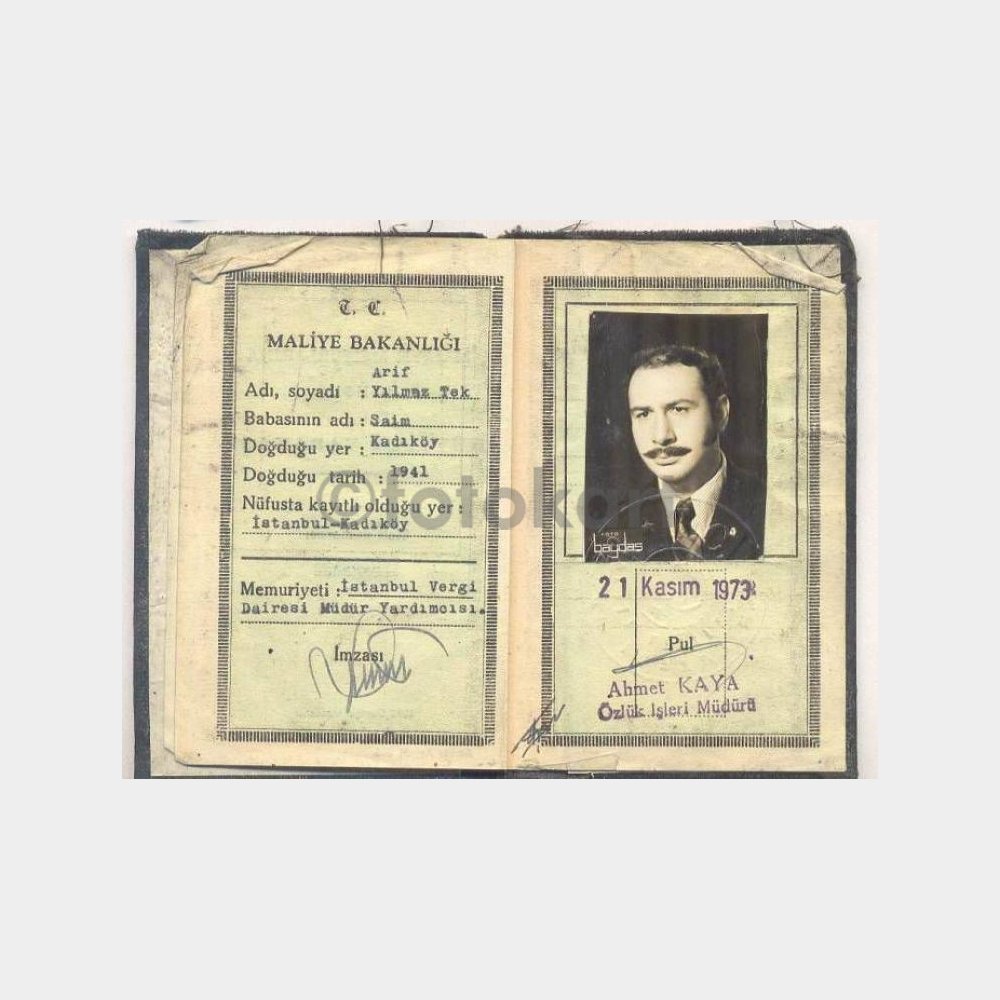 T. C.
MALİYE BAKANLIĞI
Arif
Adı, soyadı : Yılmaz Tek
Babasının adı : Saim
Doğduğu yer : Kadıköy
Doğduğu tarih : 1941
Nüfusta kayıtlı olduğu yer :
İstanbul-Kadıköy
Memuriyeti : İstanbul Vergi
Dairesi Müdür Yardımcısı.
İmzası
baydas
21 Kasım 1973
Pul
Ahmet KAYA
Özlük İşleri Müdürü
©fotokart